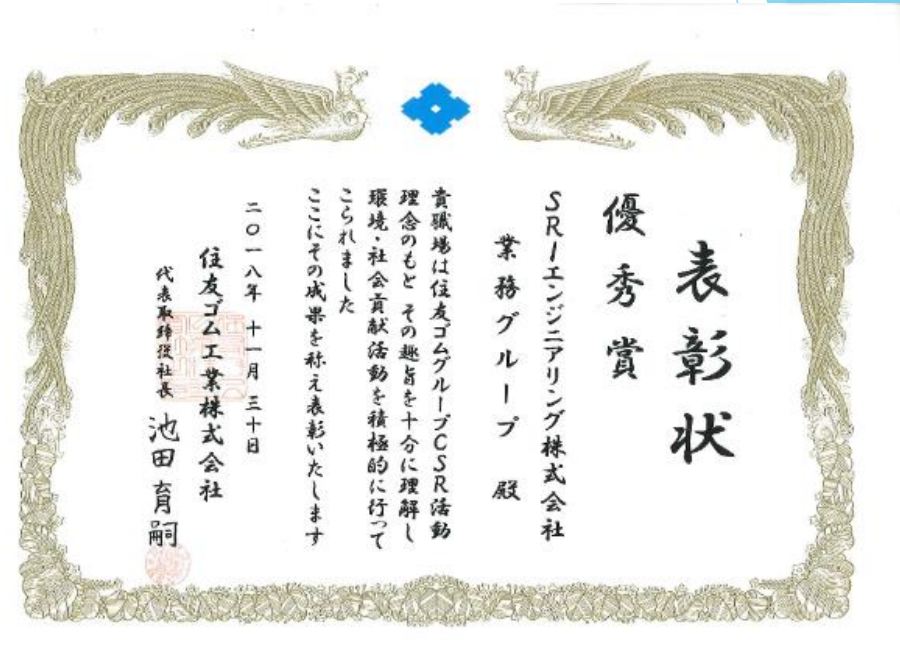 表彰状
優秀賞
SRIエンジニアリング株式会社
業務グループ 殿
貴職場は住友ゴムグループCSR活動
理念のもと その趣旨を十分に理解し
環境・社会貢献活動を積極的に行って
こられました
ここにその成果を称え表彰いたします
二〇一八年 十一月 三十日
住友ゴム工業株式会社
代表取締役社長 池田育嗣